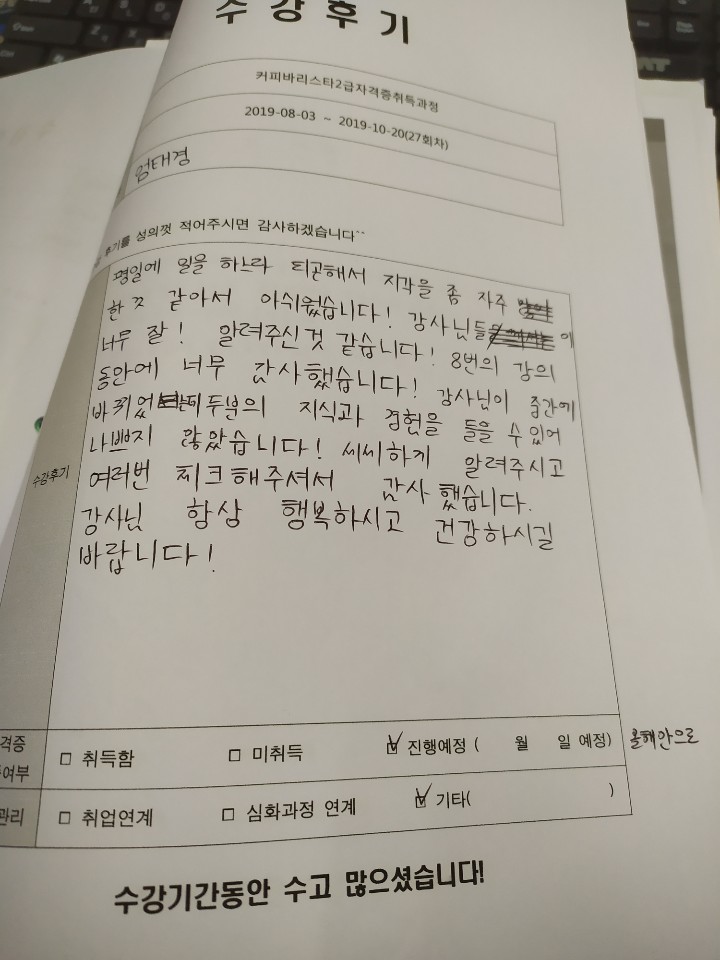 수강후기
커피바리스타2급자격증취득과정
2019-08-03 ~ 2019-10-20(27회차)
엄태경
후기를 성의껏 적어주시면 감사하겠습니다^^
평일에 일을 하느라 피곤해서 지각을 좀 자주
한 것 같아서 아쉬웠습니다! 강사님들 이
너무 잘! 알려주신것 같습니다! 8번의 강의
동안에 너무 감사했습니다! 강사님이 중간에
바뀌었 두분의 지식과 경험을 들을 수 있어
나쁘지 않았습니다! 씨씨하게 알려주시고
여러번 찌크해주셔서 감사했습니다.
수강후기
강사님 항상 행복하시고 건강하시길
바랍니다!
격증
여부
□ 취득함 □ 미취득 ☑ 진행예정 ( 월 일 예정) 올해안으로
관리 □ 취업연계 □ 심화과정 연계 ☑ 기타( )
수강기간동안 수고 많으셨습니다!